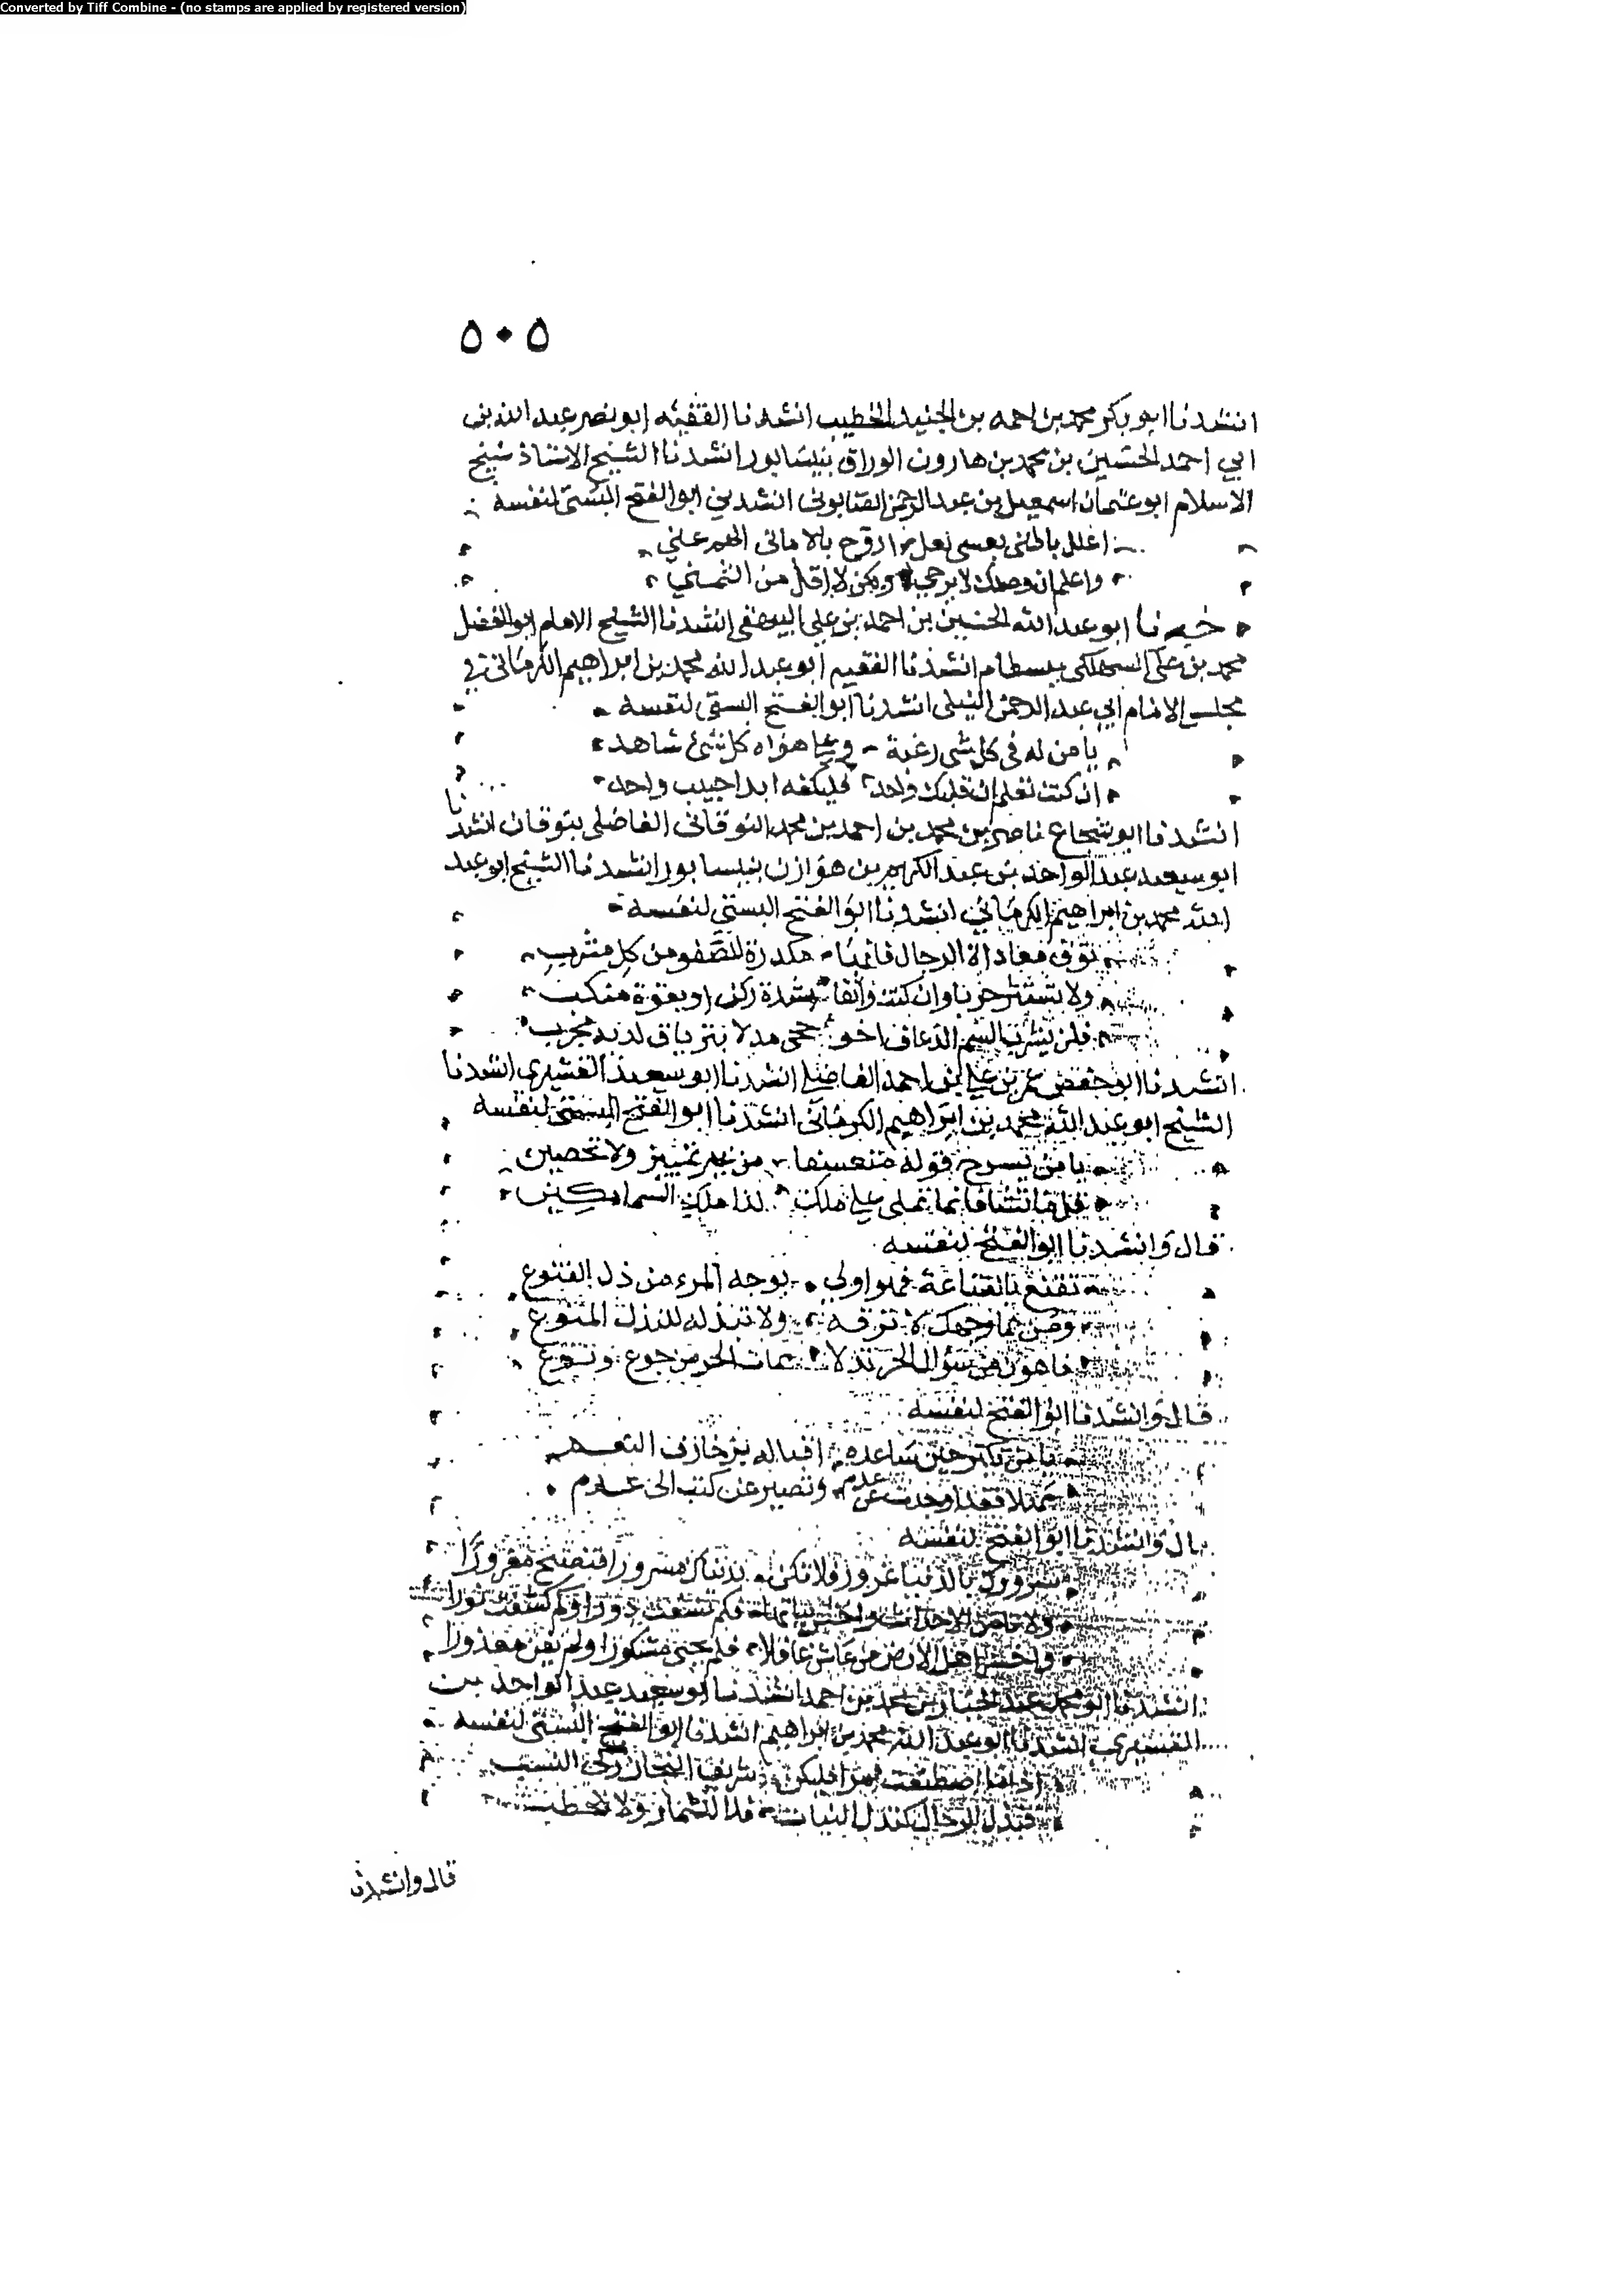 Converted by Tiff Combine - (no stamps are applied by registered version)
٥٠٥
انشدنا ابو بكر محمد بن احمد بن الجنيد الخطيب انشدنا الفقيه ابو نصر عبد الله بن
ابي احمد الحسين بن محمد بن هارون الوراق بنيسابور انشدنا الشيخ الاستاذ شيخ
الاسلام ابو عثمان اسمعيل بن عبد الرحمن الصابوني انشدني ابو الفتح البستي لنفسه
اعلل بالمنى نفسي لعلي اروح بالاماني الهم عني
واعلم ان وصلك لا يرجى ولكن لا اقل من التمني
ابو عبد الله الحسين بن احمد بن علي البيهقي انشدنا الشيخ الامام ابو الفضل
محمد بن علي السهلكي ببسطام انشدنا الفقيه ابو عبد الله محمد بن ابراهيم الكرماني في
مجلس الامام ابي عبد الرحمن النيلي انشدنا ابو الفتح البستي لنفسه
يا من له في كل شي رغبة وعلى هواه كل شيء شاهد
ان كنت تعلم ان قلبك واحد فليكفه ابدا حبيب واحد
انشدنا ابو شجاع ناصر بن محمد بن احمد بن محمد النوقاني الفاضلي بنوقان انشدنا
ابو سعيد عبد الواحد بن عبد الكريم بن هوازن بنيسابور انشدنا الشيخ ابو عبد
الله محمد بن ابراهيم الكرماني انشدنا ابو الفتح البستي لنفسه
توق معاداة الرجال فانها مكدرة للصفو من كل مشرب
ولا تستثر حربا وان كنت واثقا بشدة ركن او بقوة منكب
فلن يشرب السم الذعاف اخو حجى مدلا بترياق لديه مجرب
انشدنا ابو حفص عمر بن علي بن احمد الفاضلي انشدنا ابو سعيد القشيري انشدنا
الشيخ ابو عبد الله محمد بن ابراهيم الكرماني انشدنا ابو الفتح البستي لنفسه
يا من يسرح قوله متعسفا من غير تمييز ولا تحصين
قل ما تشا فانما تملي على ملك لذا ملك السما مكين
قال وانشدنا ابو الفتح لنفسه
تقنع بالقناعة فهو اولى بوجه المرء من ذل القنوع
وصن ما وجهك لا ترقه ولا تبذله للنذل المنوع
فاهون من سؤال الحر نذلا ممات الحر من جوع ونوع
قال وانشدنا ابو الفتح لنفسه
يا من تكبر حين ساعده اقباله
مهلا فقد اوجدت عن عدم وتصير عن كثب الى عدم
قال وانشدنا ابو الفتح لنفسه
سرورك بالدنيا غرور فلا تكن بدنياك مسرورا فتصبح مغرورا
ولا تامن الاحداث واخش بياتها فكم نسفت دورا وكم كسفت نورا
واخسر اهل الارض من عاش غافلا فلم يحي مشكورا ولم يفن معذورا
انشدنا ابو محمد عبد الجبار بن محمد بن احمد انشدنا ابو سعيد عبد الواحد بن
القشيري انشدنا ابو عبد الله محمد بن ابراهيم انشدنا ابو الفتح البستي لنفسه
اذا ما اصطنعت امرا فليكن شريف النجار زكي النسب
فنذل الرجال كنذل النبات فلا للثمار ولا للحطب
قال وانشدنا